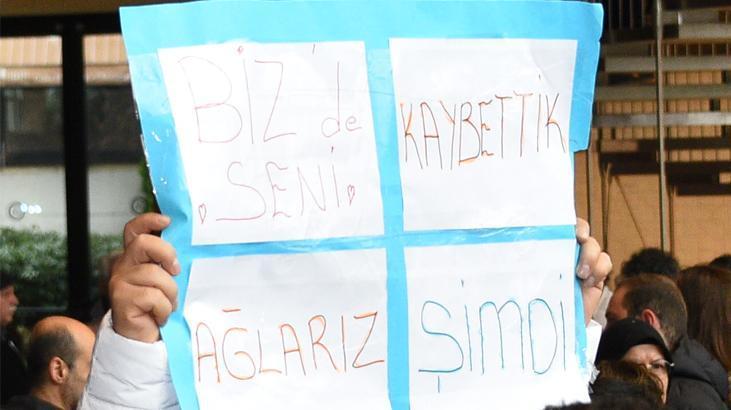 BİZ'de
SENİ
KAYBETTİK
AĞLARIZ
ŞİMDİ